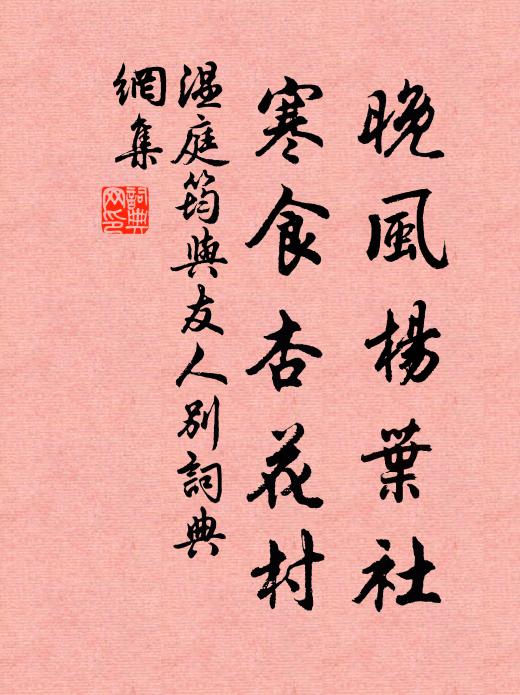 晚風楊葉社
寒食杏花村
温庭筠與友人別詞典
網集
詞典網印